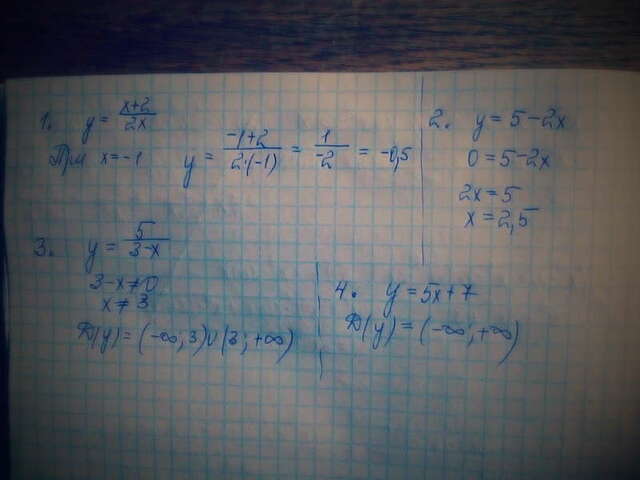 1. y = x+2 / 2x
При x = -1 y = -1+2 / 2·(-1) = 1 / -2 = -0,5
2. y = 5-2x
0 = 5-2x
2x = 5
x = 2,5
3. y = 5 / 3-x
3-x ≠ 0
x ≠ 3
D(y) = (-∞; 3)∪(3; +∞)
4. y = 5x+7
D(y) = (-∞; +∞)